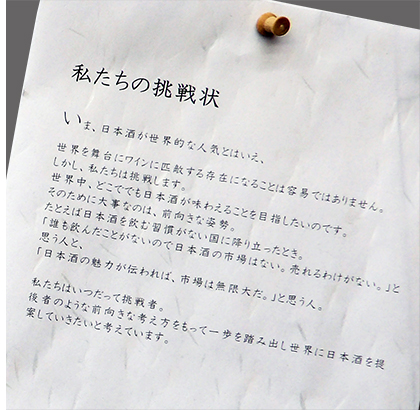 私たちの挑戦状
いま、日本酒が世界的な人気とはいえ、
世界を舞台にワインに匹敵する存在になることは容易ではありません。
しかし、私たちは挑戦します。
世界中、どこででも日本酒が味わえることを目指したいのです。
そのために大事なのは、前向きな姿勢。
たとえば日本酒を飲む習慣がない国に降り立ったとき。
「誰も飲んだことがないので日本酒の市場はない。売れるわけがない。」と
思う人と、
「日本酒の魅力が伝われば、市場は無限大だ。」と思う人。
私たちはいつだって挑戦者。
後者のような前向きな考え方をもって一歩を踏み出し世界に日本酒を提
案していきたいと考えています。